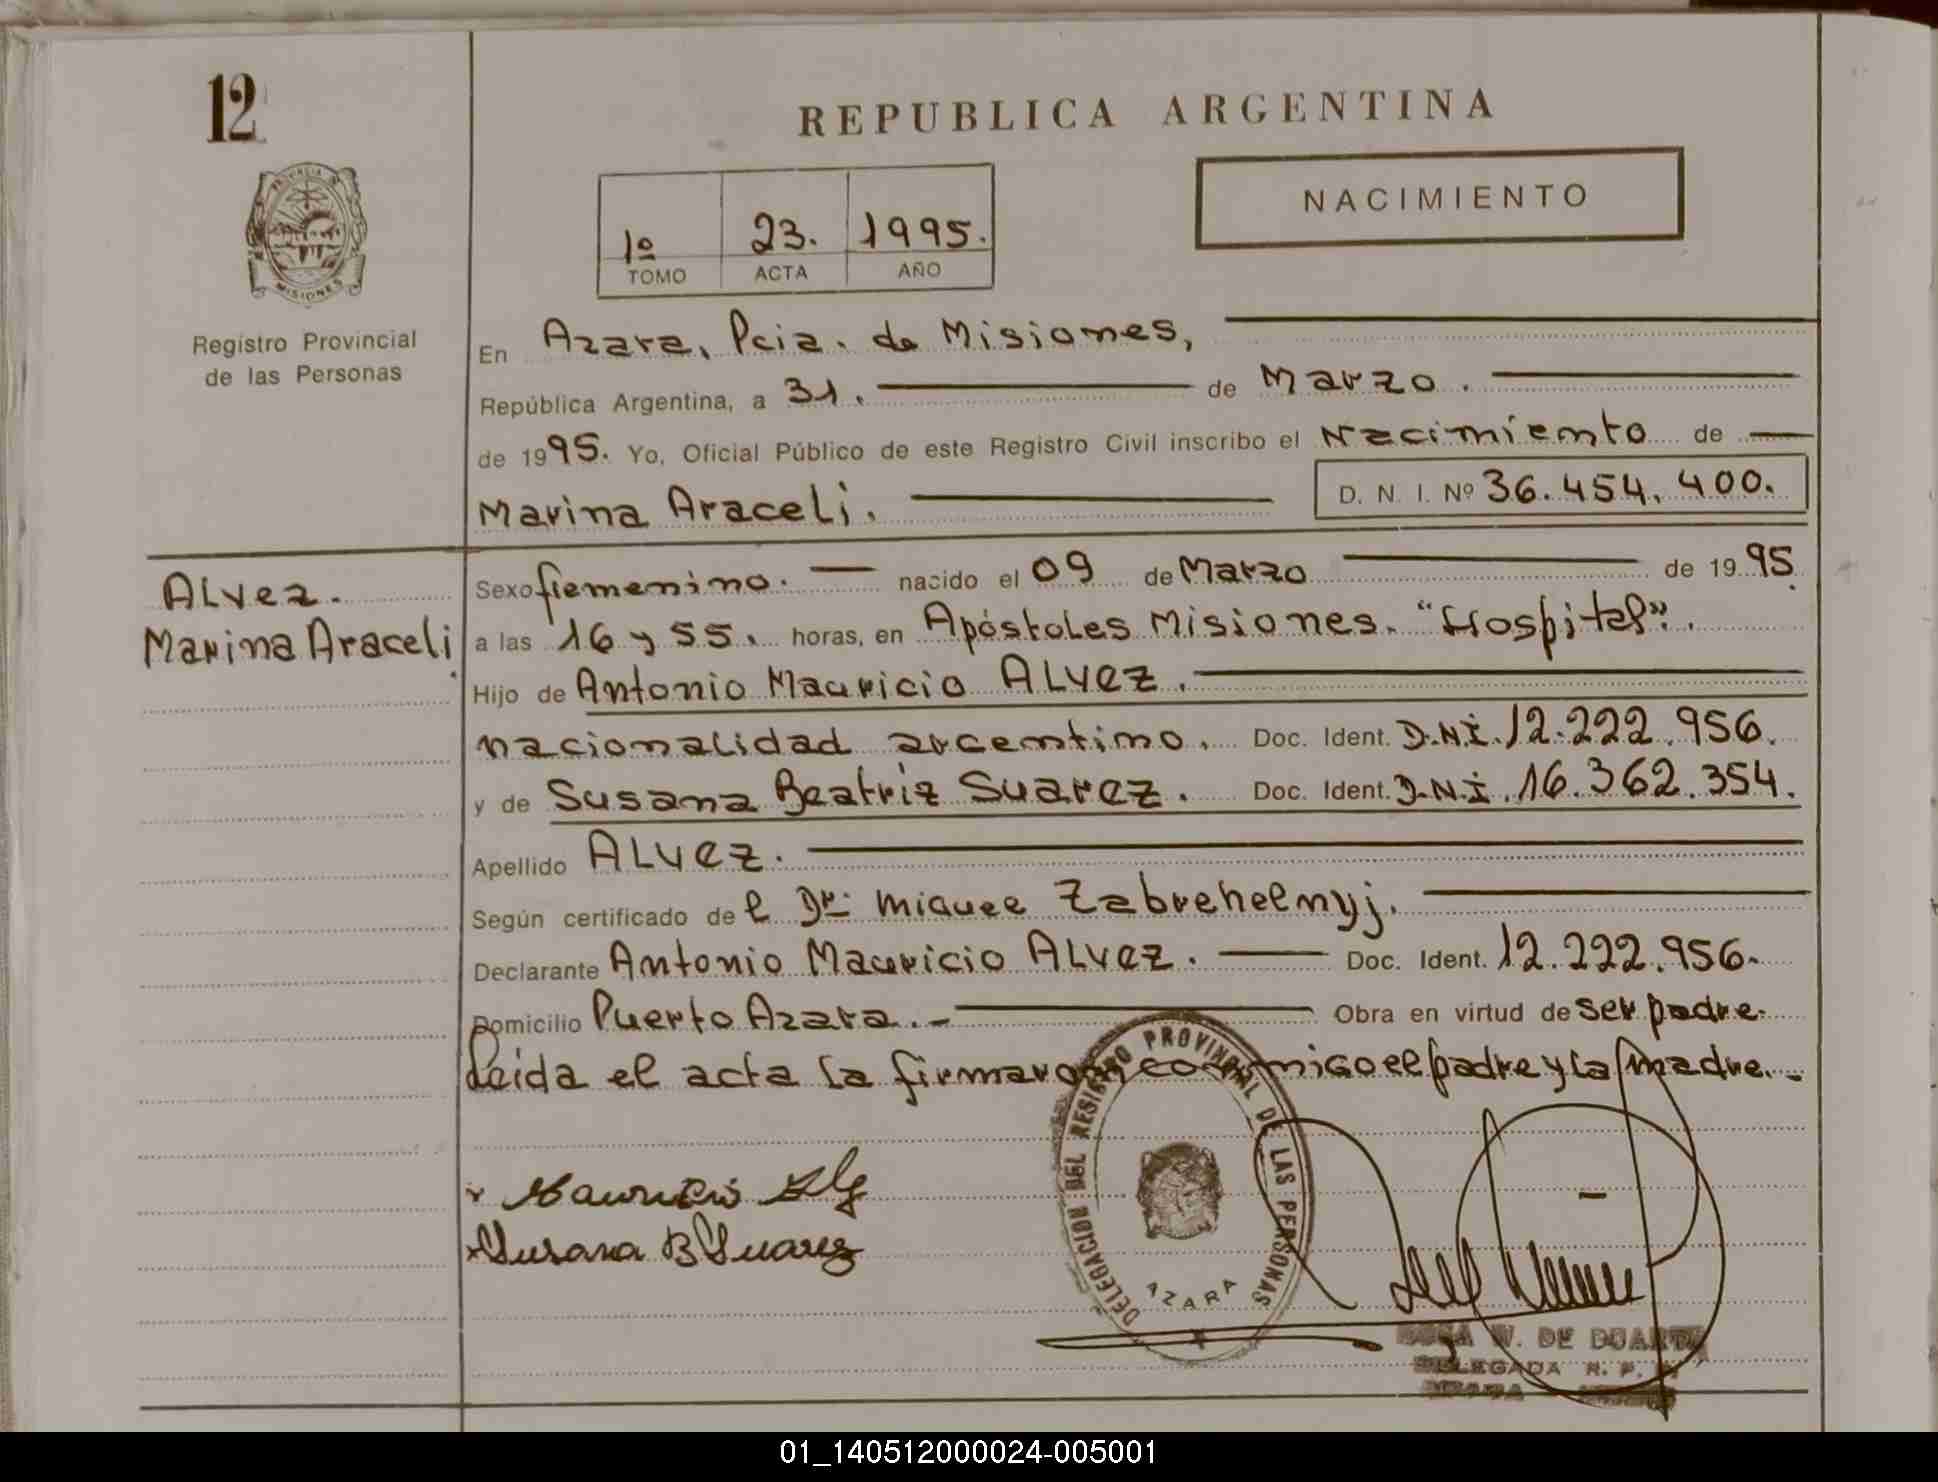 12
REPUBLICA ARGENTINA
PROVINCIA DE
MISIONES
Registro Provincial
de las Personas
1º 23. 1995.
TOMO ACTA AÑO
NACIMIENTO
En Azara, Pcia. de Misiones,
República Argentina, a 31. de Marzo.
de 1995. Yo, Oficial Público de este Registro Civil inscribo el Nacimiento de
Marina Araceli. D. N. I. Nº 36.454.400.
Alvez.
Marina Araceli.
Sexo femenino. nacido el 09 de Marzo de 1995.
a las 16 y 55. horas, en Apóstoles Misiones. "Hospital".
Hijo de Antonio Mauricio ALVEZ.
nacionalidad argentino. Doc. Ident. D.N.I. 12.222.956.
y de Susana Beatriz Suarez. Doc. Ident. D.N.I. 16.362.354.
Apellido ALVEZ.
Según certificado de l Dr: Miguel Zabrehelnyj.
Declarante Antonio Mauricio ALVEZ. Doc. Ident. 12.222.956.
Domicilio Puerto Azara.- Obra en virtud de ser padre.
Leida el acta la firmaron conmigo el padre y la madre.-
x Mauricio
x Susana B Suarez
DELEGACION DEL REGISTRO PROVINCIAL DE LAS PERSONAS
AZARA
W. DE DUARTE
DELEGADA R. P.
01_140512000024-005001